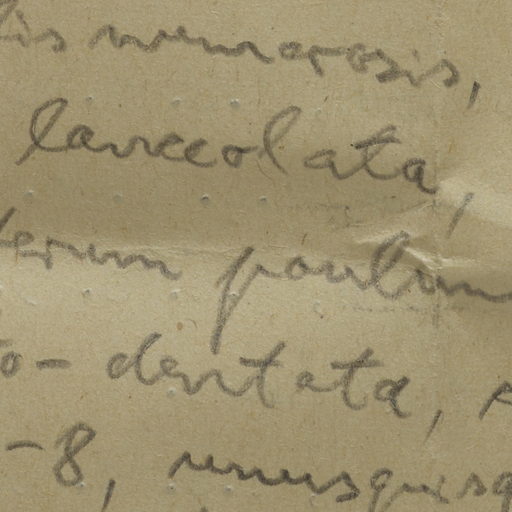 lis numerosis,
lanceolata,
terum paulum
to-dentata,
-8, unusquisq